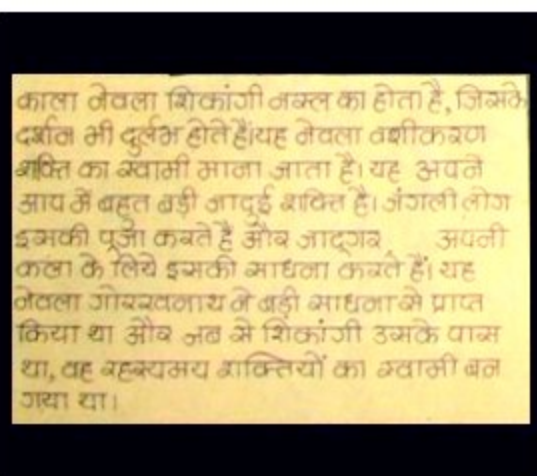 काला नेवला शिकांगी नस्ल का होता है, जिसके
दर्शन भी दुर्लभ होते हैं।यह नेवला वशीकरण
शक्ति का स्वामी माना जाता है। यह अपने
आप में बहुत बड़ी जादुई शक्ति है। जंगली लोग
इसकी पूजा करते है और जादूगर अपनी
कला के लिये इसकी साधना करते हैं। यह
नेवला गोरखनाथ ने बड़ी साधना से प्राप्त
किया था और जब से शिकांगी उसके पास
था, वह रहस्यमय शक्तियों का स्वामी बन
गया था।